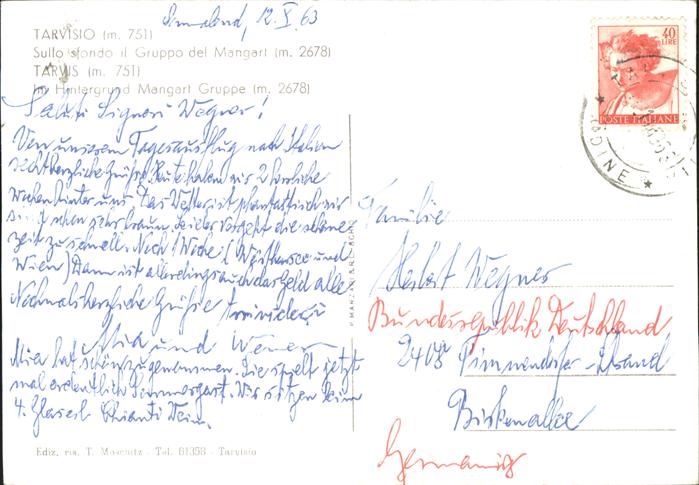 Sonnabend, 12. X. 63
TARVISIO (m. 751)
Sullo sfondo il Gruppo del Mangart (m. 2678)
TARVIS (m. 751)
Im Hintergrund Mangart Gruppe (m. 2678)
Saluti Signori Wegner!
Von unserem Tagesausflug nach Italien
recht herzliche Grüße. Heute haben wir 2 herrliche
Wochen hinter uns. Das Wetter ist phantastisch wir
sind schon sehr braun. Leider vergeht die schöne
Zeit zu schnell. Noch 1 Woche (Wörthersee und
Wien) Dann ist allerdings auch das Geld alle
Nochmals herzliche Grüße Arrivederci
Mia und Werner
Mia hat schön zugenommen. Sie spielt jetzt
mal ordentlich Wir sitzen beim
4. Glaserl Chianti Wein.
Ediz. ris. T. Moschitz - Tel. 61358 - Tarvisio
40
LIRE
POSTE ITALIANE
UDINE
Familie
Herbst Wegner
Bundesrepublik Deutschland
2408 Timmendorfer-Strand
Birkenallee
Germania